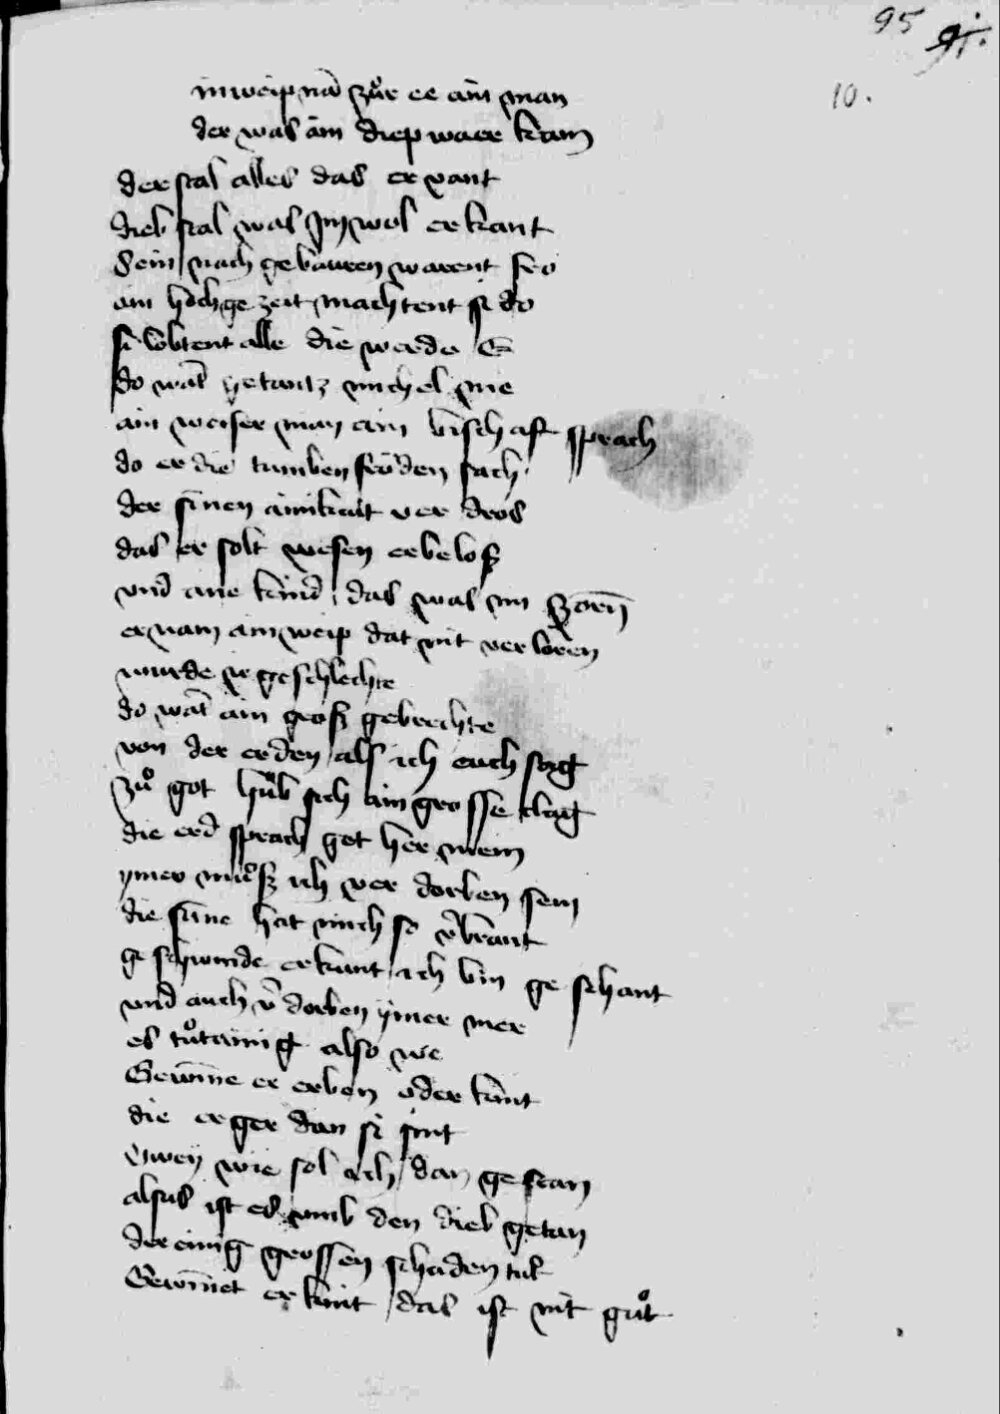 95 91.
10.
in weip nā zůr ee ain man
der was ain diep waer kam
der stal alles das er vant
dieb stal was Im wol erkant
Sein nach gebauren warent fro
ain hochge zeit machtent si do
si lobtent alle die werde E
do wart getantz michel me
ain weiser man ain bischaft sprach
do er die tumben fröden sach
der sinen ainikait ver dros
das er solt wesen erbelos
vnd ane kind das was im zorn
er nam ain weip dat nit verloren
wurde ir geschlechte
do wart ain gross gebrechte
von der erden als ich euch sag
zů got hůb sich ain grosse clag
die erd sprach got her mein
ymer můs ich ver dorben sein
die sūne hat mich so v̄brant
ge schwinde erkunt ich bin ge schant
vnd auch v̄dorben ymer mer
es tůt ainig also we
Gewīne er erben oder kint
die erger dan si sint
Owey wie sol ich dan gestan
alsus ist es vmb den dieb getan
der einig grossen schaden tut
Gewīnet er kint das ist nit gůt